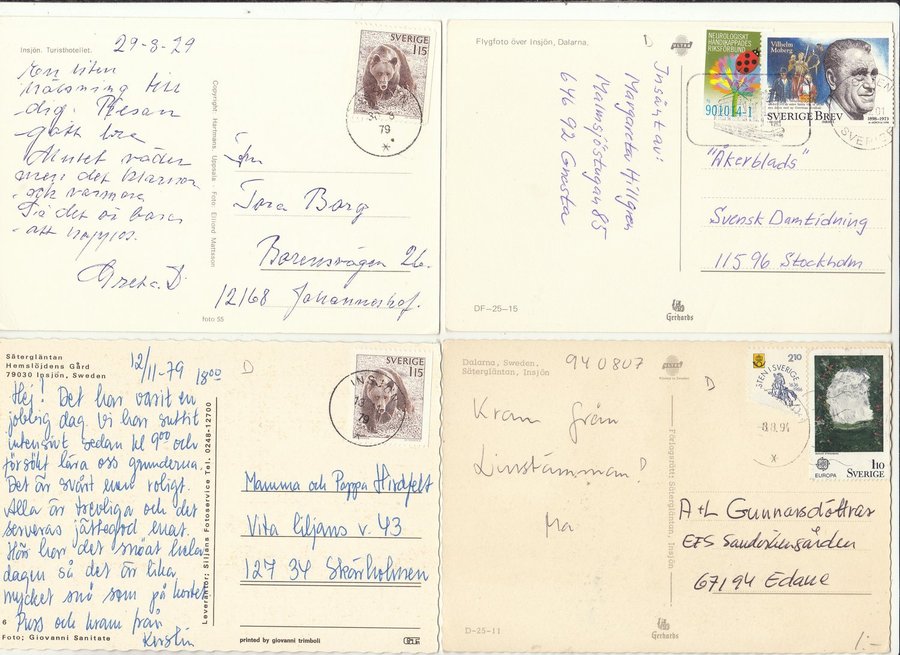 Insjön. Turisthotellet.
29-8-79
En liten
hälsning till
dig. Resan
gått bra
väder
men det
och varmare
Så det är bara
att hoppas.
Greta D.
Copyright: Hartmans, Uppsala - Foto: Ellinod Mattsson
SVERIGE
115
79
Tora Borg
Borensvägen 26.
12168 Johanneshof.
foto 55
Flygfoto över Insjön, Dalarna.
D
ULTRA
Insänt av:
Margareta Hillgren
Malmsjöstugan 85
646 92 Gnesta
NEUROLOGISKT
HANDIKAPPADES
RIKSFÖRBUND
901014-1
Vilhelm
Moberg
SVERIGE BREV
1898-1973
SVERIGE
"Åkerblads"
Svensk Damtidning
115 96 Stockholm
DF-25-15
Gerhards
Sätergläntan
Hemslöjdens Gård
79030 Insjön, Sweden
12/11-79 18:00
D
Hej! Det har varit en
jobbig dag. Vi har suttit
intensivt sedan kl 9:00 och
försökt lära oss grunderna.
Det är svårt men roligt.
Alla är trevliga och det
serveras jättegod mat.
Här har det snöat hela
dagen så det är lika
mycket snö som på kortet
Puss och kram från
Kerstin
6
Foto; Giovanni Sanitate
Leverantör: Siljans Fotoservice Tel. 0248-12700
SVERIGE
115
INSJÖN
79
Mamma och Pappa Hirdfelt
Vita Liljans v. 43
127 34 Skärholmen
printed by giovanni trimboli
Dalarna, Sweden,
Sätergläntan, Insjön
940807
ULTRA
D
Kram från
Linstämman!
Ma
Förlagsrätt: Sätergläntan, Insjön
210
STEN I SVERIGE
-8.8.94
EUROPA
110
SVERIGE
A+L Gunnarsdöttrar
EFS Sundsbergsgården
67194 Edane
D-25-11
Gerhards
1:-